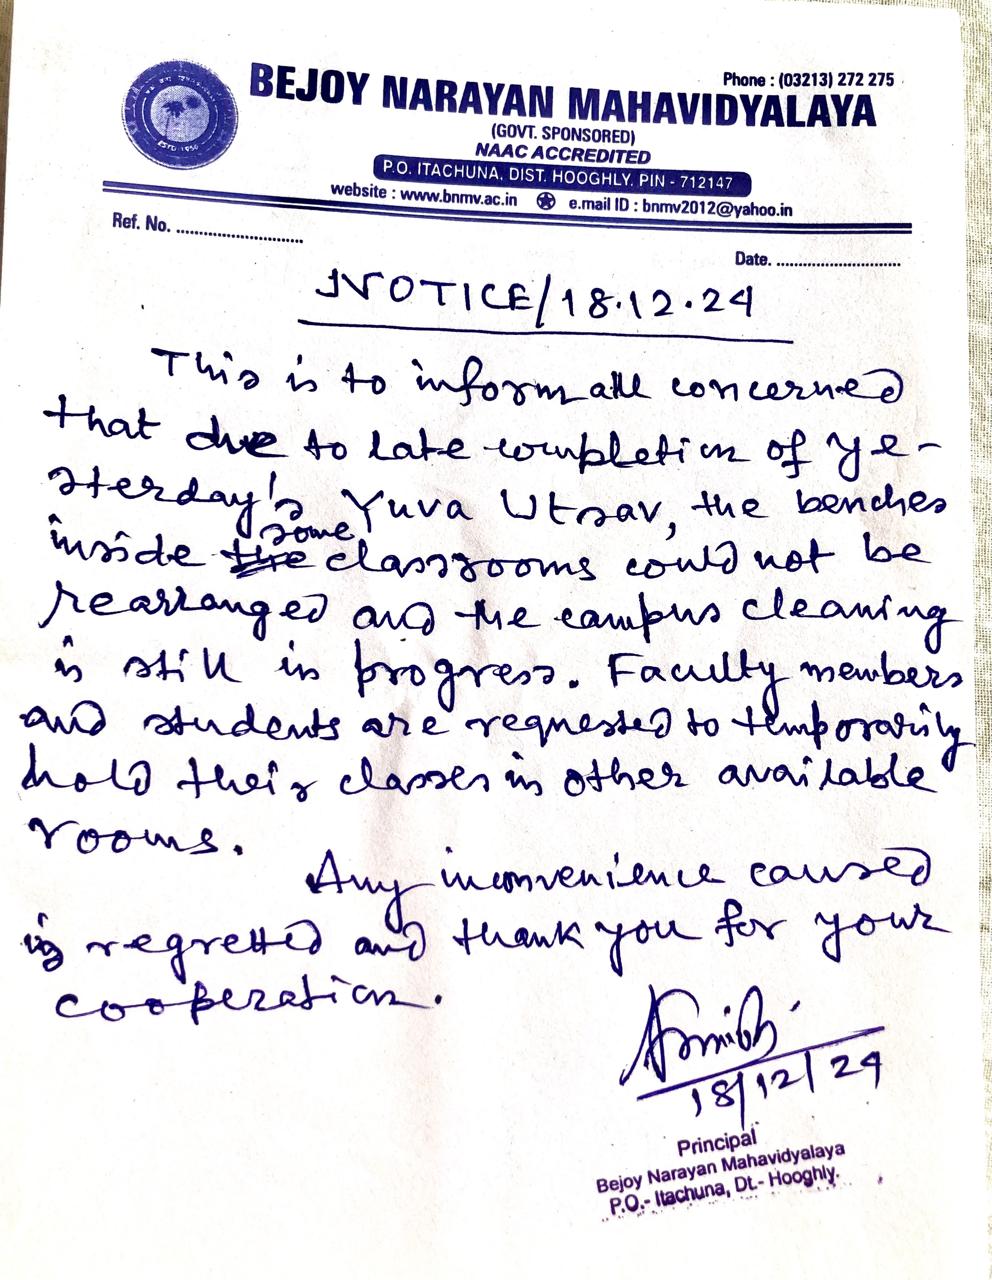 Phone : (03213) 272 275
BEJOY NARAYAN MAHAVIDYALAYA
(GOVT. SPONSORED)
NAAC ACCREDITED
P.O. ITACHUNA, DIST. HOOGHLY. PIN - 712147
website : www.bnmv.ac.in e.mail ID : bnmv2012@yahoo.in
ESTD. 1950
Ref. No. ..............................
Date. ..............................
NOTICE/18.12.24
This is to inform all concerned
that due to late completion of ye-
sterday's Yuva Utsav, the benches
inside some classrooms could not be
rearranged and the campus cleaning
is still in progress. Faculty members
and students are requested to temporarily
hold their classes in other available
rooms.
Any inconvenience caused
is regretted and thank you for your
cooperation.
18/12/24
Principal
Bejoy Narayan Mahavidyalaya
P.O.- Itachuna, Dt.- Hooghly.